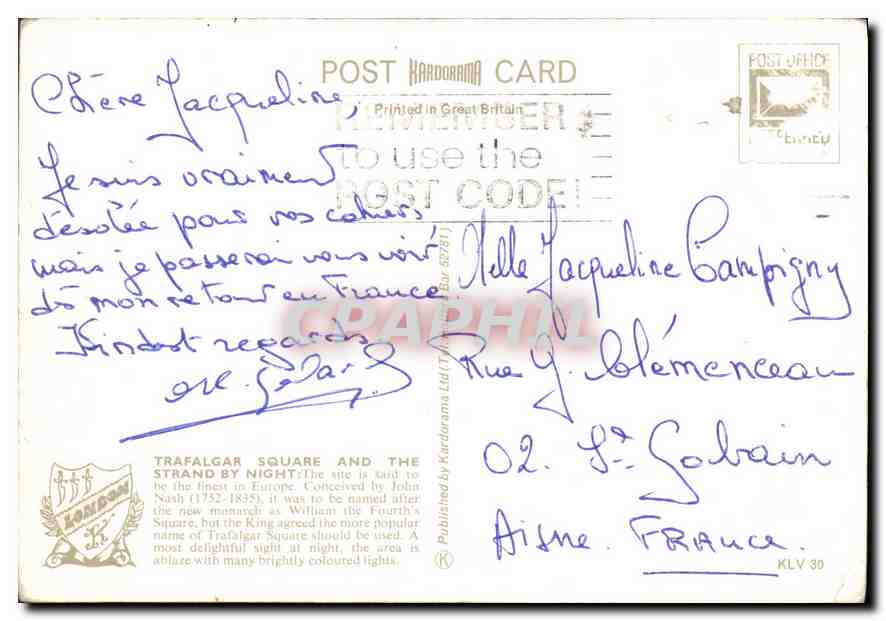 POST KARDORAMA CARD
Printed in Great Britain
REMEMBER
to use the
POST CODE!
POST OFFICE
PREFERRED
Chère Jacqueline,
Je suis vraiment
désolée pour vos cahiers
mais je passerai vous voir
dès mon retour en France.
Kindest regards
Melle Jacqueline Campigny
Rue G. Clémenceau
02. St. Gobain
Aisne. FRANCE.
CPAPHIL
Published by Kardorama Ltd ( Bar 52781)
K
LONDON
K
TRAFALGAR SQUARE AND THE
STRAND BY NIGHT: The site is said to
be the finest in Europe. Conceived by John
Nash (1752-1835), it was to be named after
the new monarch as William the Fourth's
Square, but the King agreed the more popular
name of Trafalgar Square should be used. A
most delightful sight at night, the area is
ablaze with many brightly coloured lights.
KLV 30